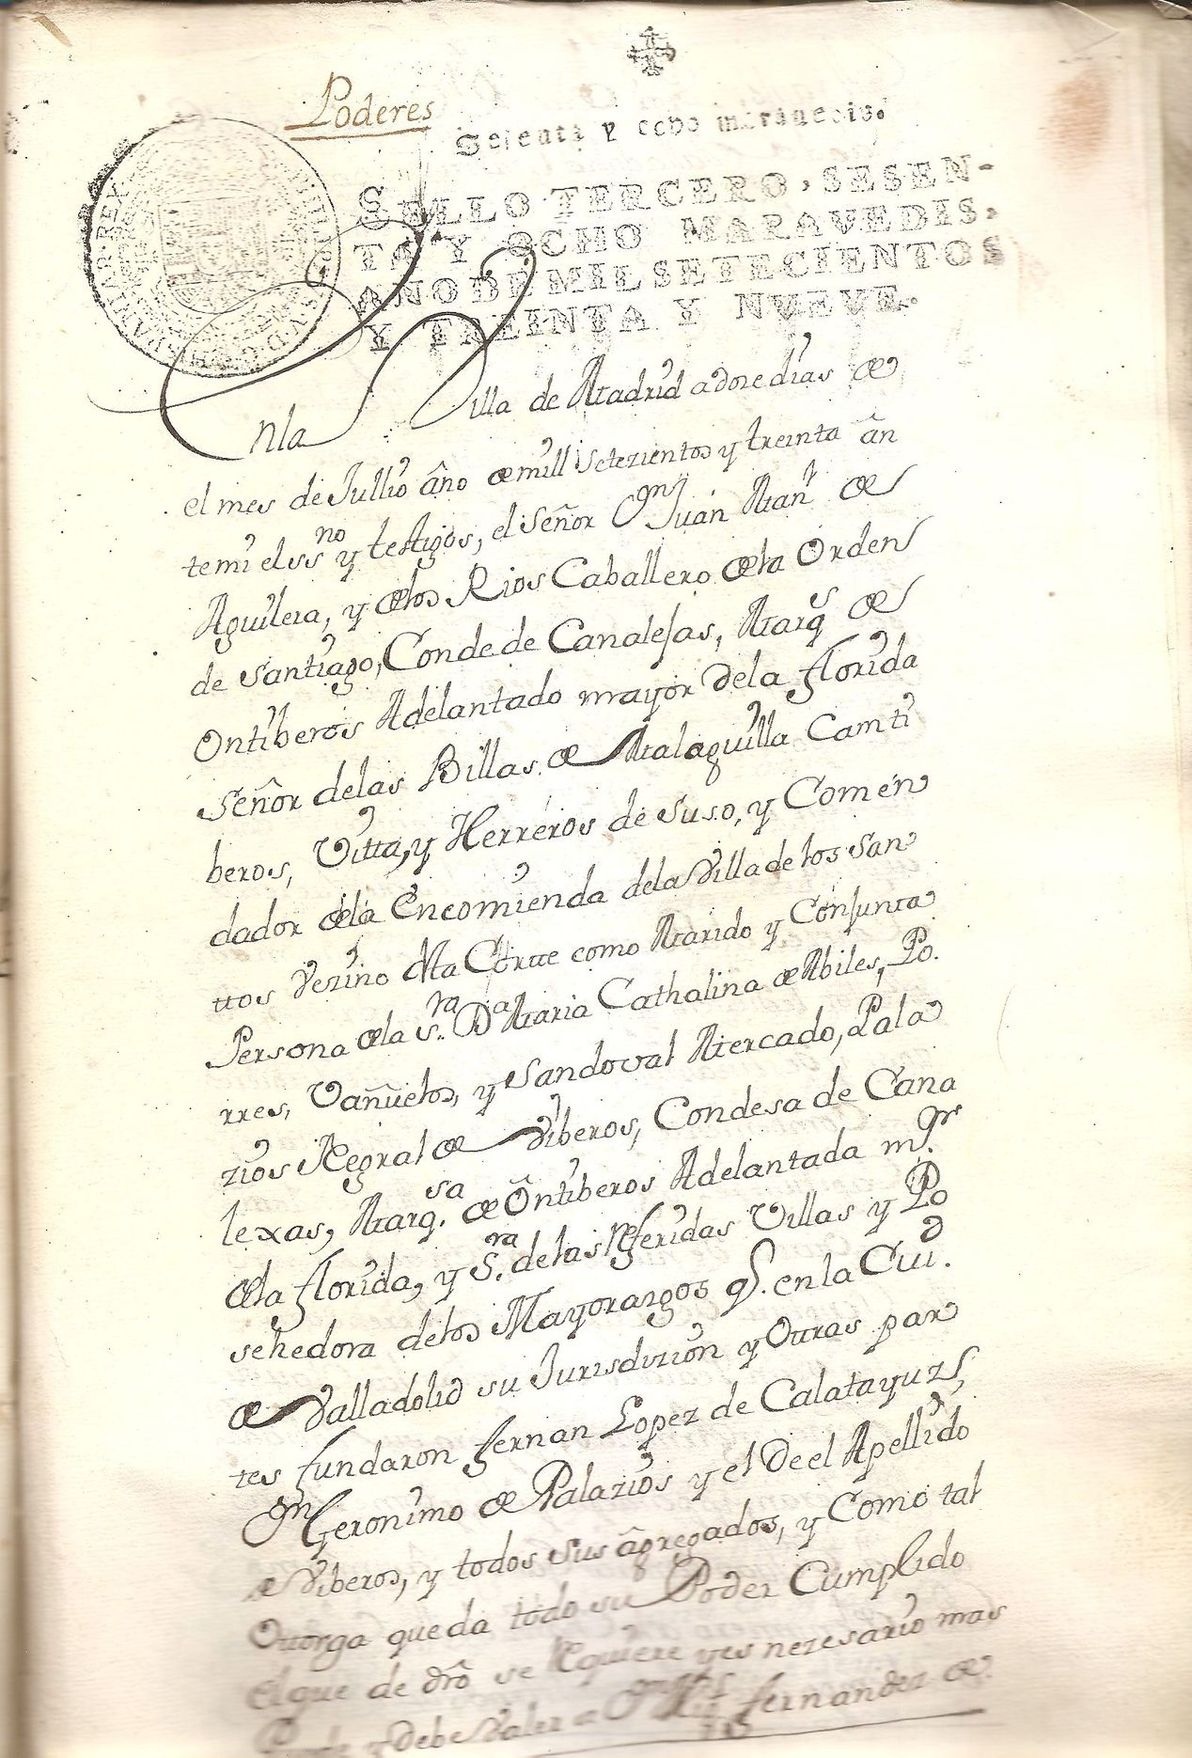 Poderes
Sesenta y ocho maravedis.
SELLO TERCERO, SESEN-
TA Y OCHO MARAVEDIS,
AÑO DE MIL SETECIENTOS
Y TREINTA Y NUEVE.
Enla Villa de Madrid a doze dias de
el mes de Jullio año de mill setezientos y treinta an
temi el ssno y testigos, el Señor Dn Juan Man.l de
Aguilera, y de los Rios Caballero de la Orden
de Santiago, Conde de Canalejas, Marqs de
Ontiberos Adelantado mayor dela florida
Señor delas Billas de Malaguilla Camti
beros, Vitta, y Herreros de Suso, y Comen
dador dela Encomienda dela Villa de los San
ttos vezino desta Cortte como Marido y Conjunta
Persona dela s.ra Da Maria Cathalina de Abiles, Po.
rres, Vañuelos, y Sandoval Mercado, Pala
zios Regral de Viberos, Condesa de Cana
lexas, Marq.sa de Ontiberos Adelantada m.or
dela florida, y S.ra de las Referidas Villas y Po
sehedora delos Mayorazgos q. en la Ciud.
de Valladolid su Jurisdizion y Ottras par
tes fundaron fernan Lopez de Calatayuz,
Dn Geronimo de Palazios y el de el Apellido
de Viberos, y todos sus agregados, y Como tal
Ottorga que da todo su Poder Cumplido
el que de dro se Requiere y es nezesario mas
Puede y debe Valer a Dn fernandez de